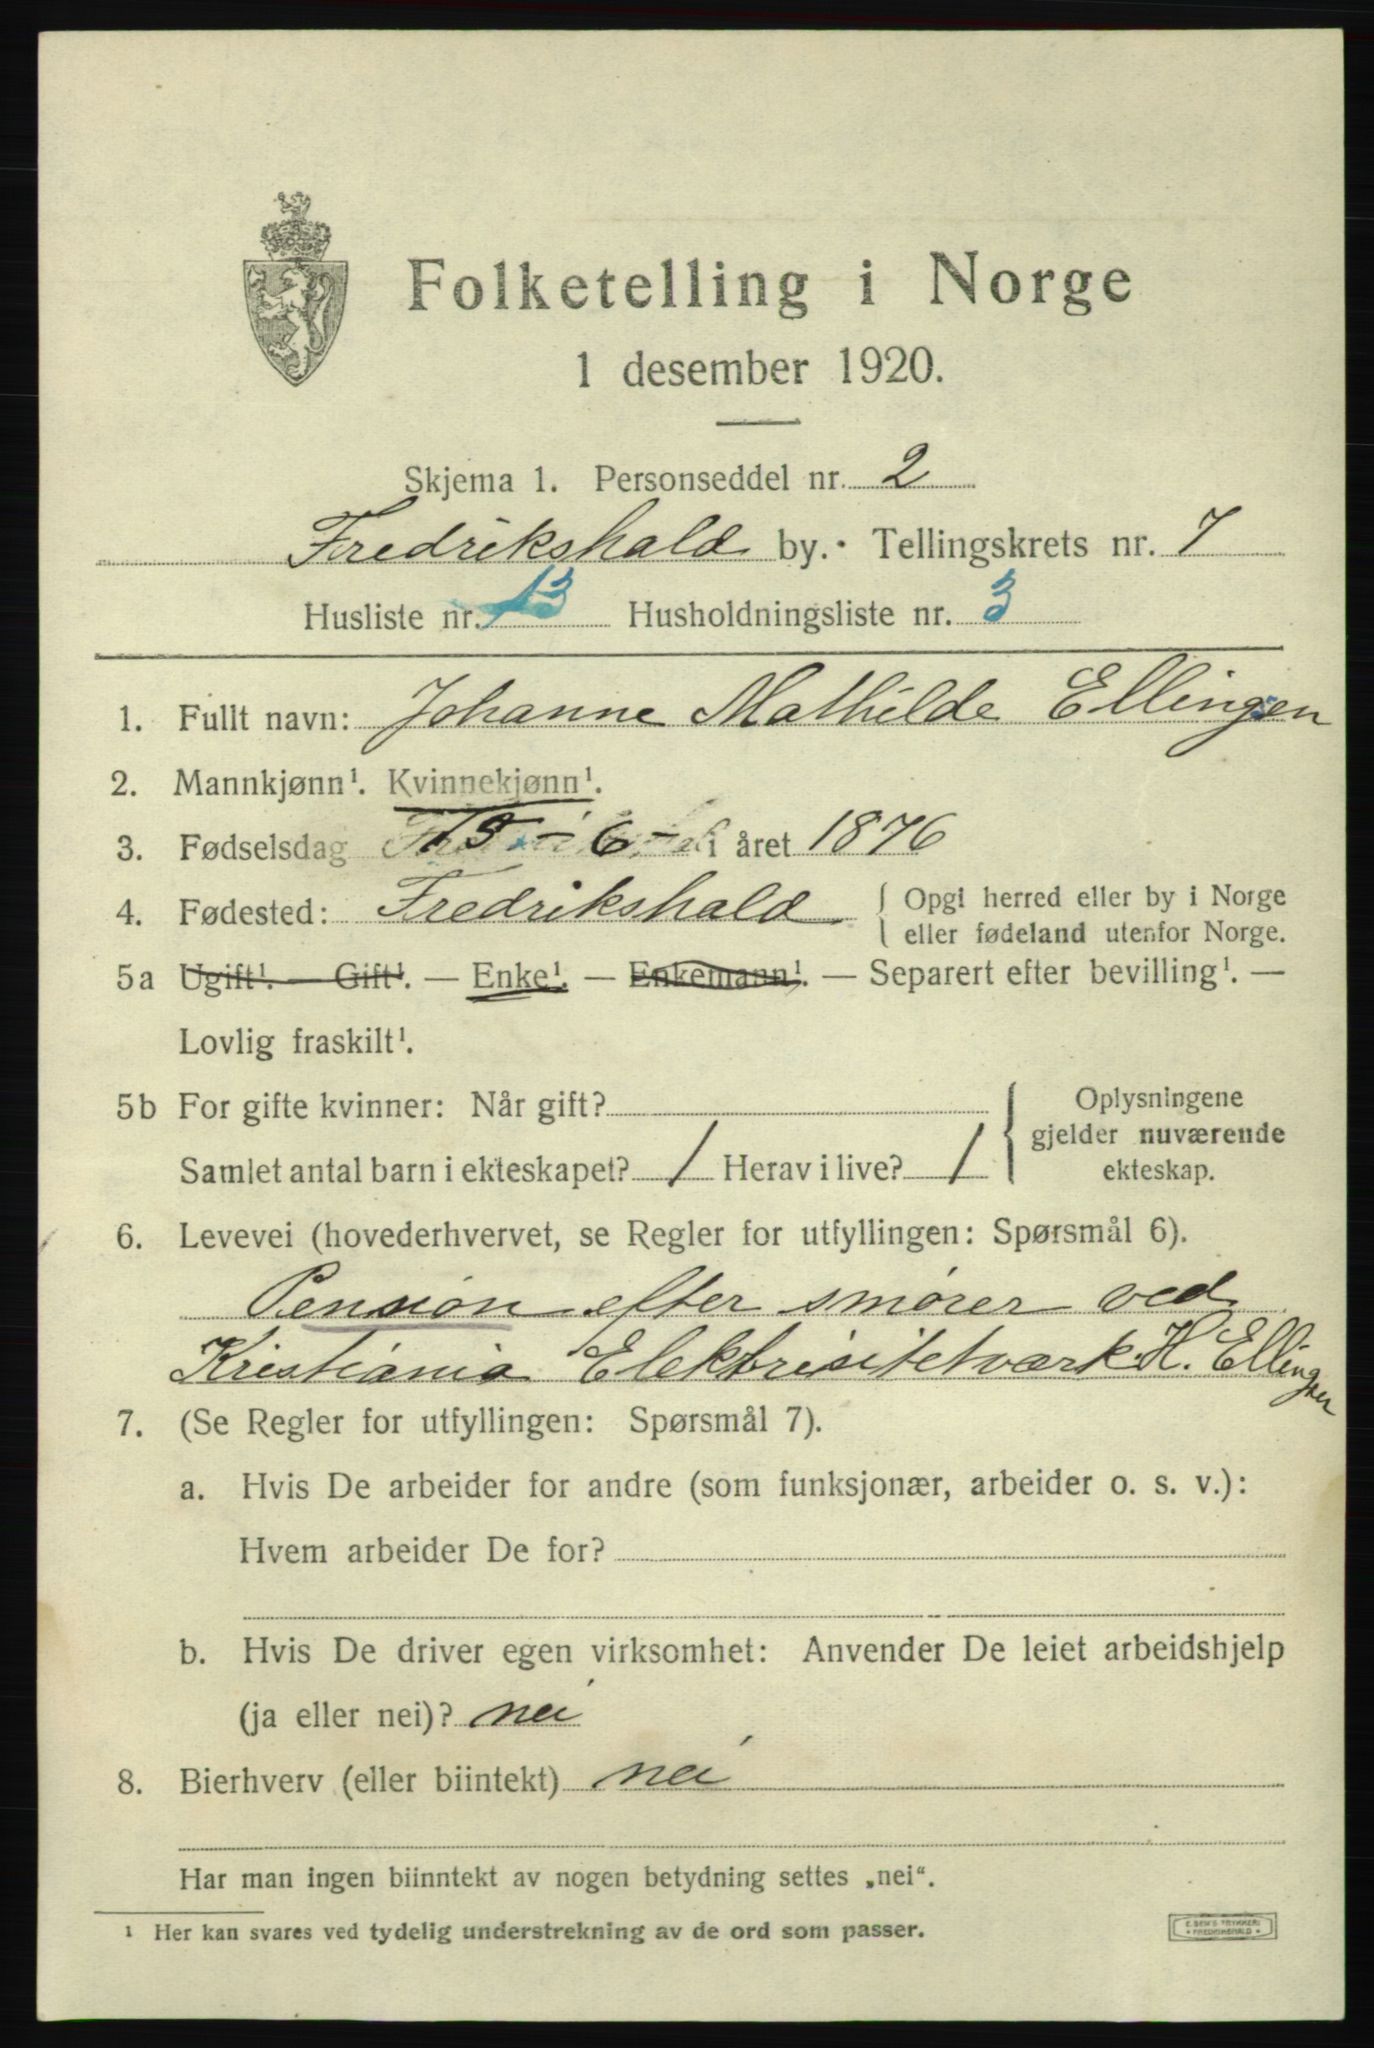 Folketelling i Norge
1 desember 1920.
Skjema 1. Personseddel nr. 2
Fredrikshald by. Tellingskrets nr. 7
Husliste nr. 13 Husholdningsliste nr. 3
1. Fullt navn: Johanne Mathilde Ellingsen
2. Mannkjønn¹. Kvinnekjønn¹.
3. Fødselsdag 15 - 6 - i året 1876
4. Fødested: Fredrikshald { Opgi herred eller by i Norge
eller fødeland utenfor Norge.
5a Ugift¹. — Gift¹. — Enke¹. — Enkemann¹. — Separert efter bevilling¹. —
Lovlig fraskilt¹.
5b For gifte kvinner: Når gift?
Samlet antal barn i ekteskapet? 1 Herav i live? 1
Oplysningene
gjelder nuværende
ekteskap.
6. Levevei (hovederhvervet, se Regler for utfyllingen: Spørsmål 6).
Pension efter smører ved
Kristiania Elektrisitetværk H. Ellingsen
7. (Se Regler for utfyllingen: Spørsmål 7).
a. Hvis De arbeider for andre (som funksjonær, arbeider o. s. v.):
Hvem arbeider De for?
b. Hvis De driver egen virksomhet: Anvender De leiet arbeidshjelp
(ja eller nei)? nei
8. Bierhverv (eller biintekt) nei
Har man ingen biinntekt av nogen betydning settes „nei“.
¹ Her kan svares ved tydelig understrekning av de ord som passer.